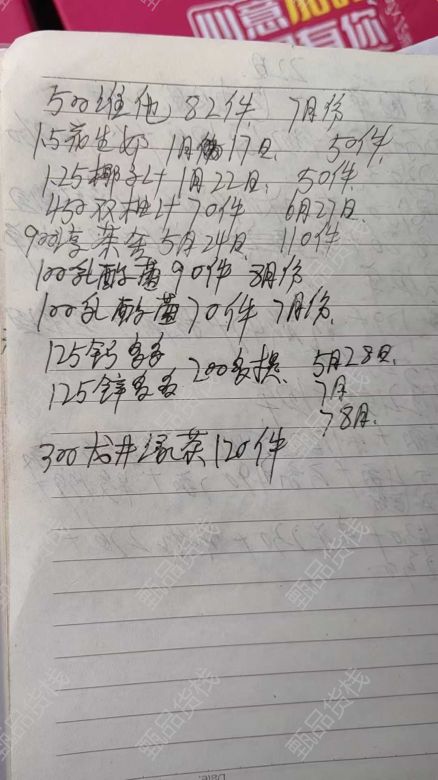 500维他 82件 7月份
1.5花生奶 1月17日 50件
1.25椰子汁 1月22日 50件
450双柚汁 70件 6月27日
900淳茶舍 5月24日 110件
100乳酸菌 90件 8月份
100乳酸菌 70件 7月份
125钙多多 200多提 5月28日
125锌多多 7月
78月
300龙井绿茶 120件
Date.
甄品货栈